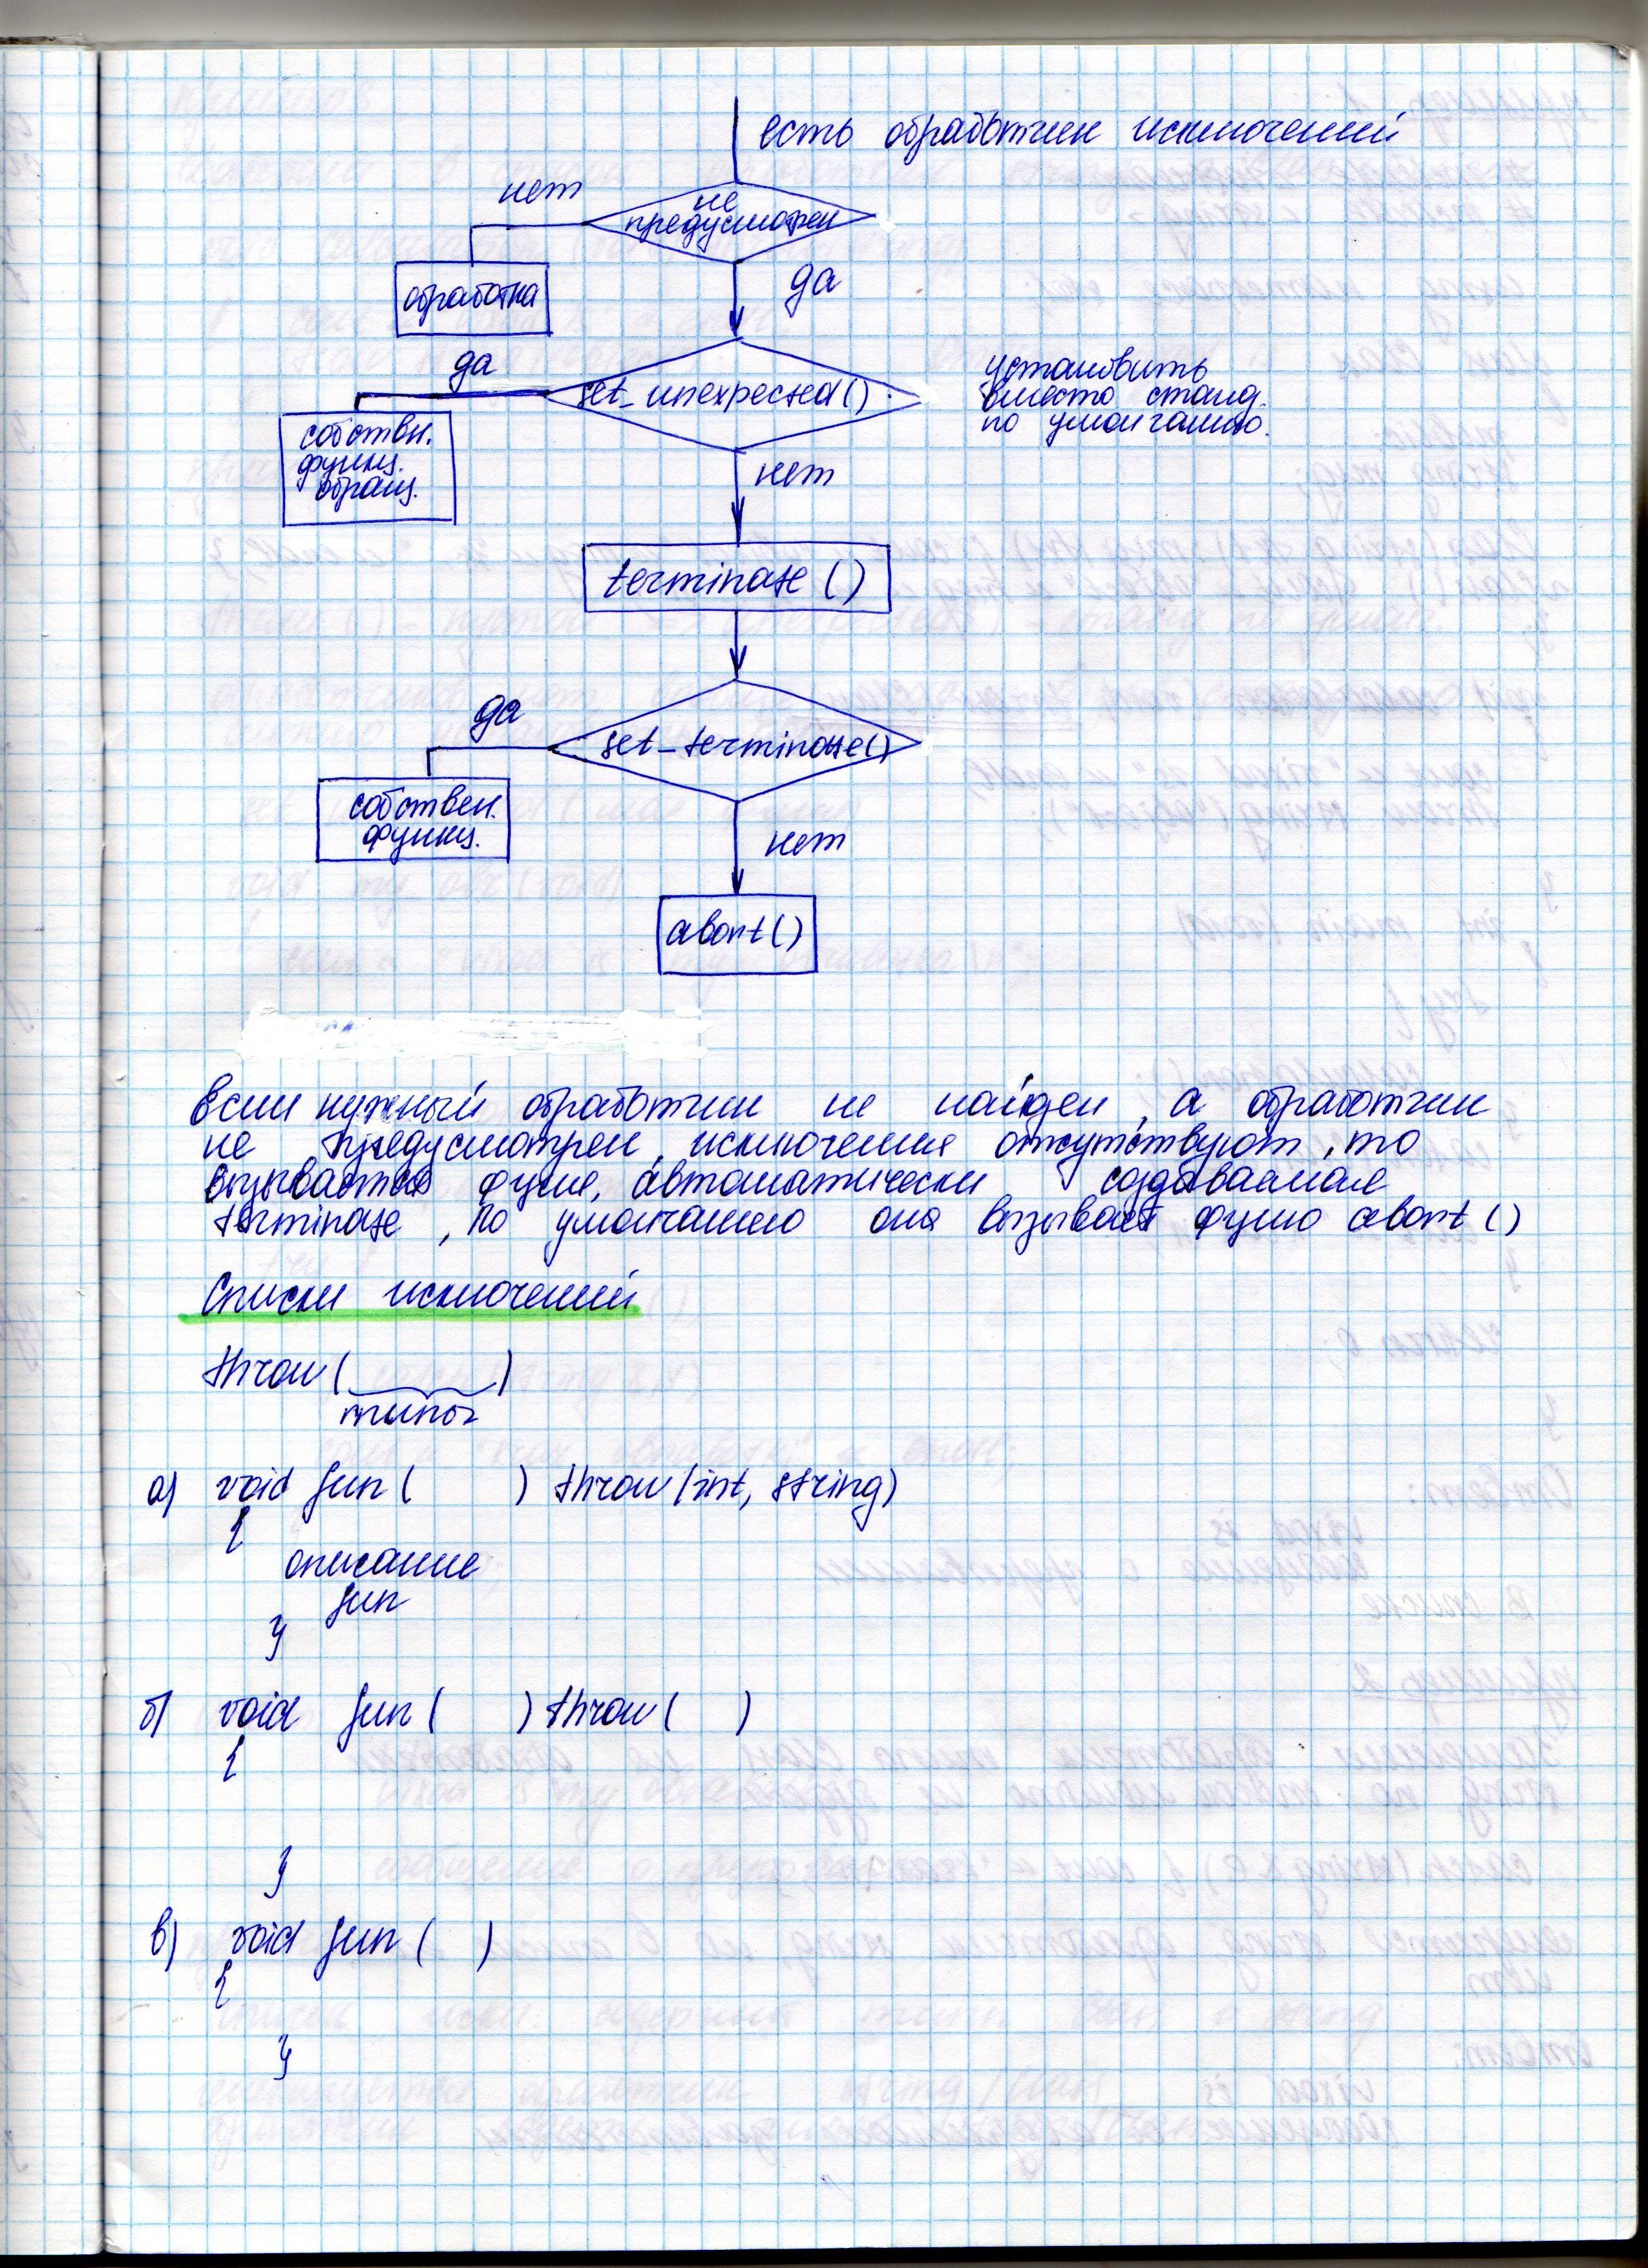 есть обработчик исключений
нет
не
предусмотрен
да
обработка
да
set_unexpected()
установить
вместо станд.
по умолчанию.
собствен.
функц.
нет
terminate ()
да
set_terminate()
собствен.
функц.
нет
abort()
Если нужный обработчик не найден, а обработчик
не предусмотрен, исключения отсутствуют, то
вызывается функ, автоматически создаваемая
terminate, по умолчанию она вызывает функю abort ()
Списки исключений
throw( )
типы
а) void fun ( ) throw (int, string)
{
описание
fun
}
б) void fun ( ) throw ( )
{
}
в) void fun ( )
{
}